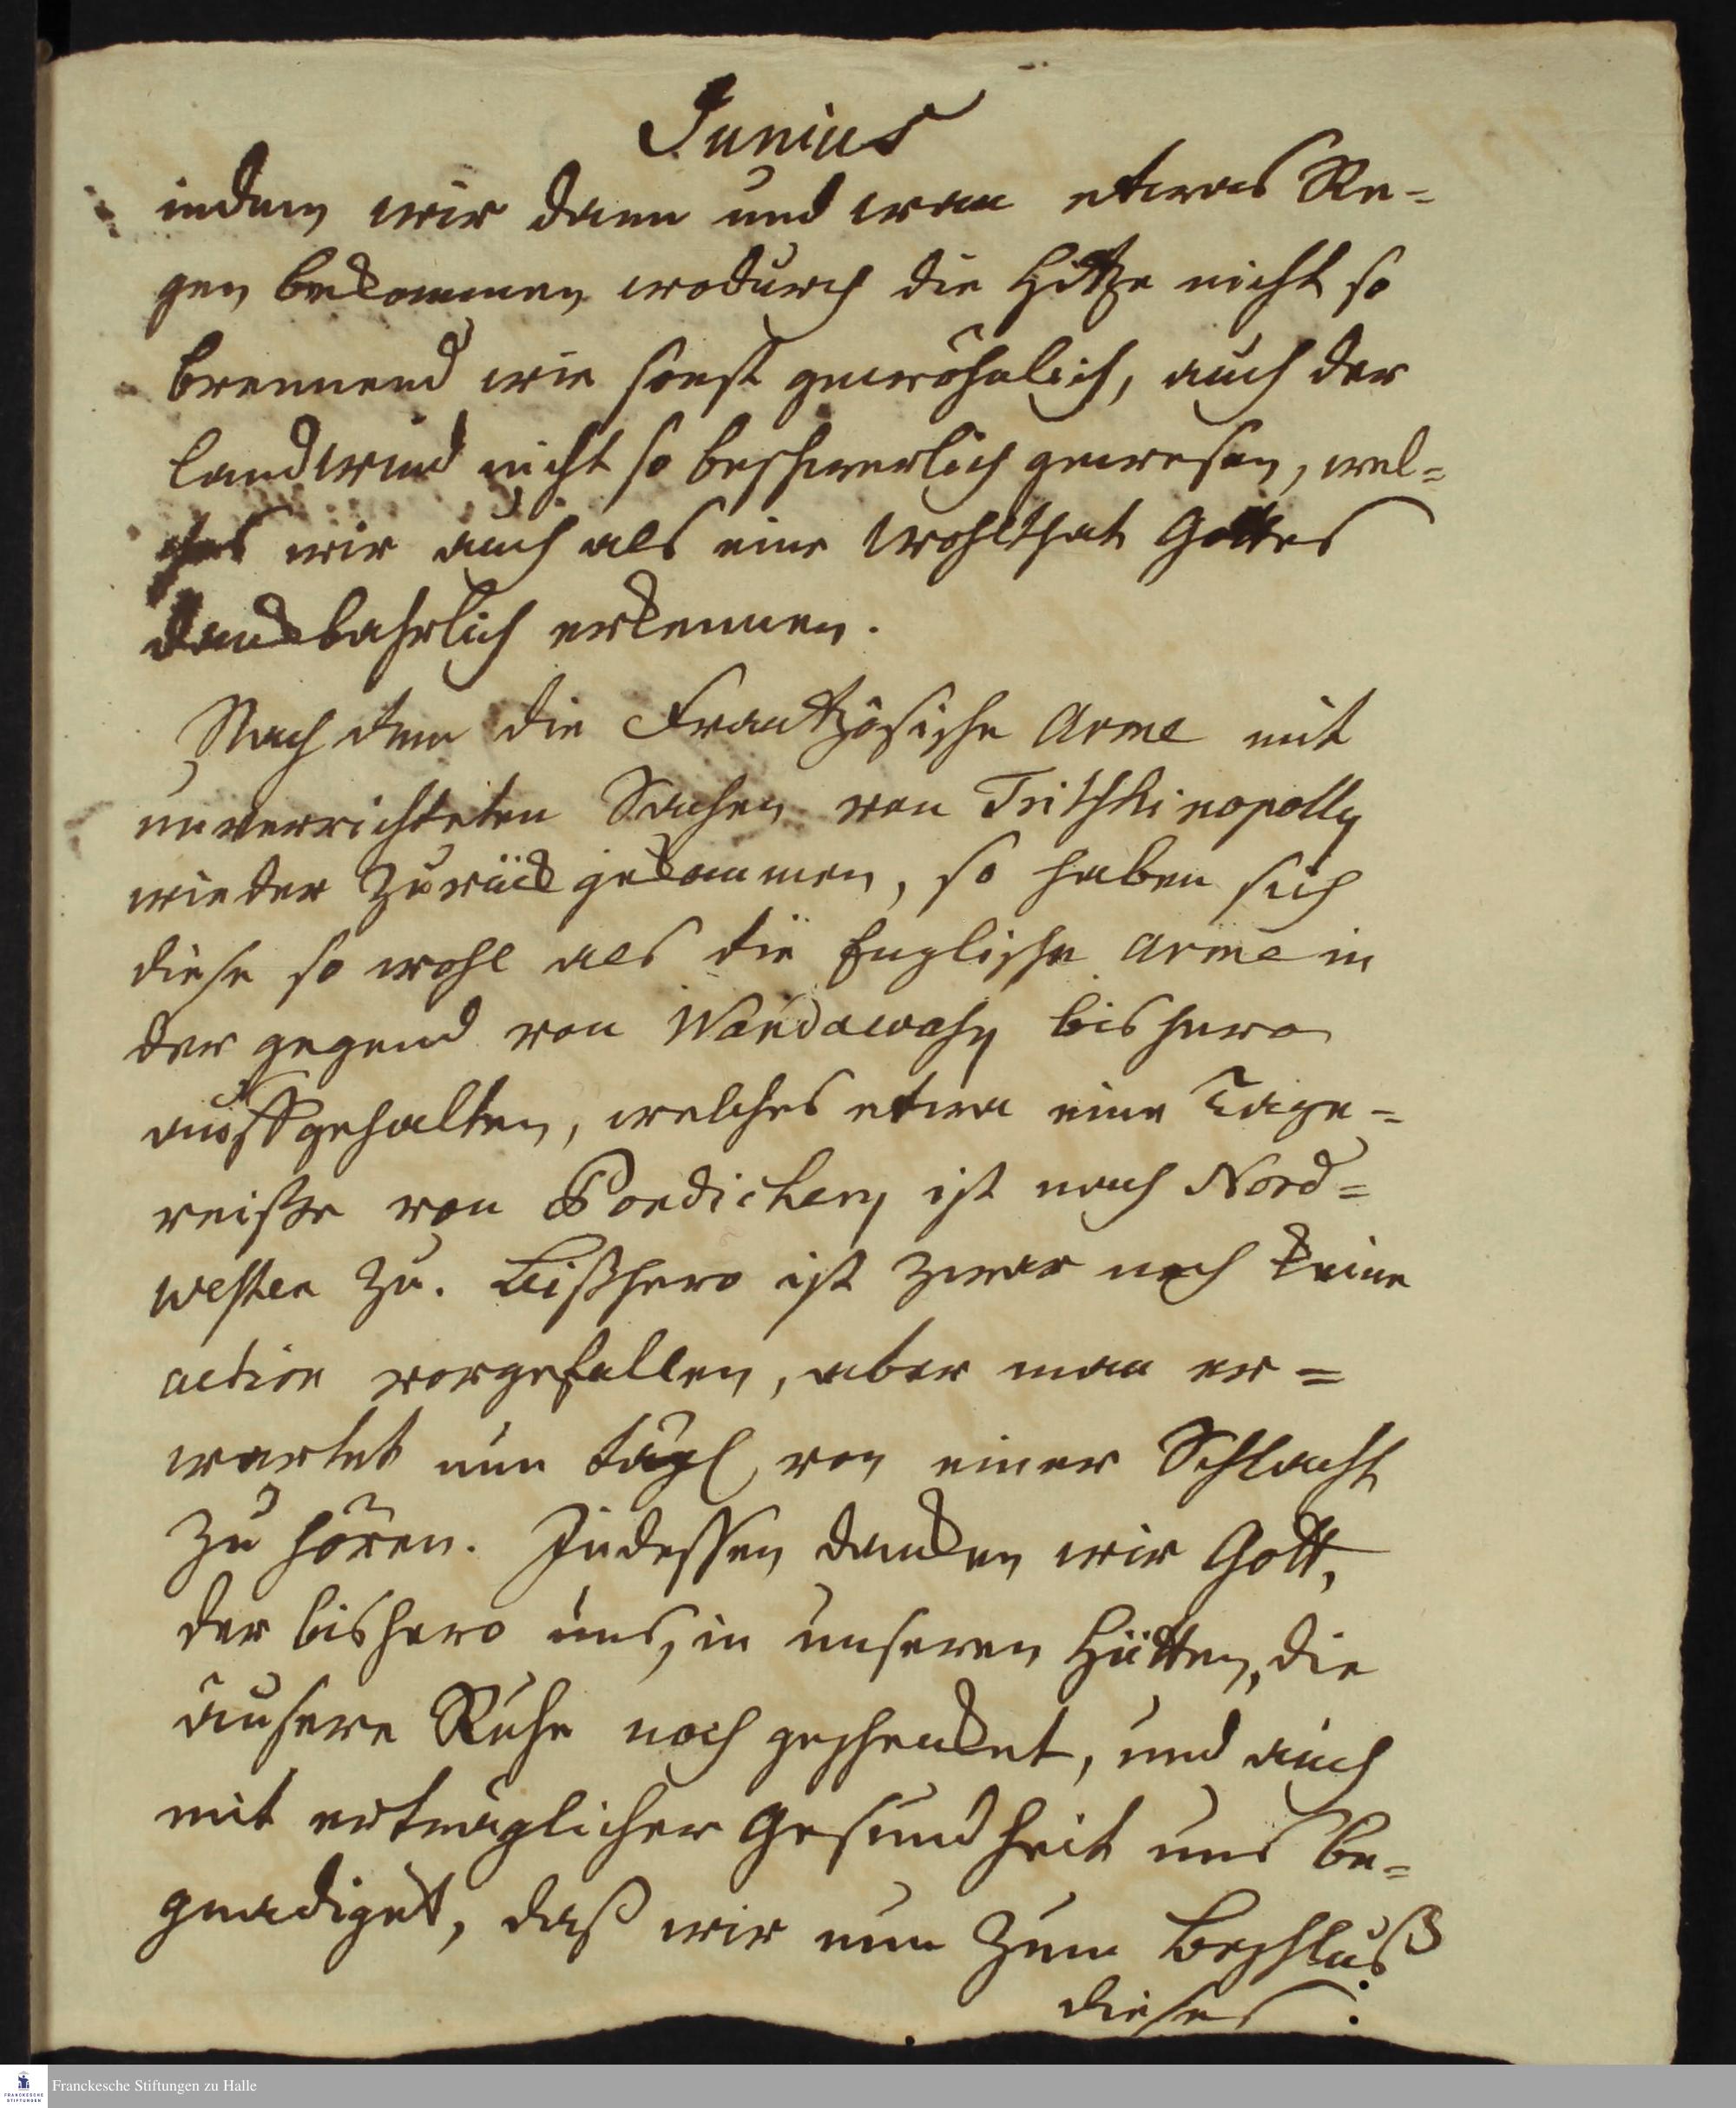 Junius
indem wir dann und wan etwas Re-
gen bekommen wodurch die Hitze nicht so
brennend wie sonst gewöhnlich, auch der
landwind nicht so beschwerlich gewesen, wel-
ches wir auch als eine Wohlthat Gottes
dankbahrlich erkennen.
Nach dem die Frantzösische Arme mit
unverrichteten Sachen von Tritschinopolly
wieder zurück gekommen, so haben sich
diese so wohl als die Englische Arme in
der gegend von Wandawasy bishero
auffgehalten, welches etwa eine Tage-
reiße von Pondichery ist nach Nord-
westen zu. Bißhero ist zwar noch keine
action vorgefallen, aber man er-
wartet nun tägl von einer Schlacht
zu hören. Indessen danken wir Gott,
der bishero uns, in unseren Hütten, die
äusere Ruhe noch geschenket, und auch
mit erträglicher Gesundheit uns be-
gnadiget, daß wir nun zum Beschluß
dieses
Franckesche Stiftungen zu Halle
FRANCKESCHE
STIFTUNGEN